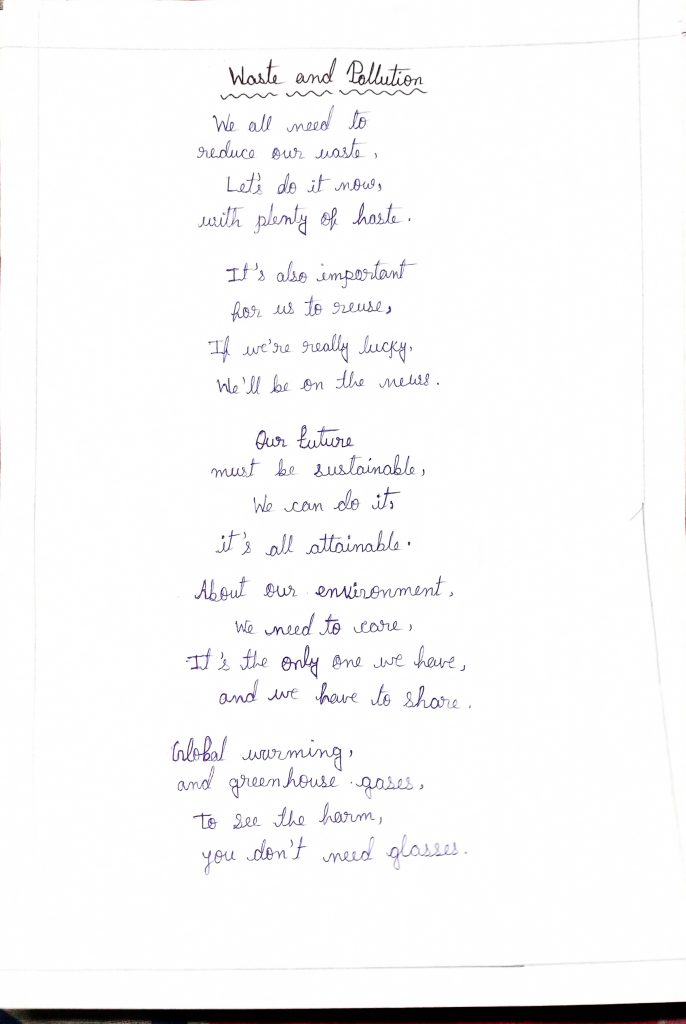 Waste and Pollution
We all need to
reduce our waste,
Let's do it now,
with plenty of haste.
It's also important
for us to reuse,
If we're really lucky,
We'll be on the news.
Our future
must be sustainable,
We can do it,
it's all attainable.
About our environment,
We need to care,
It's the only one we have,
and we have to share.
Global warming,
and greenhouse gases,
To see the harm,
you don't need glasses.